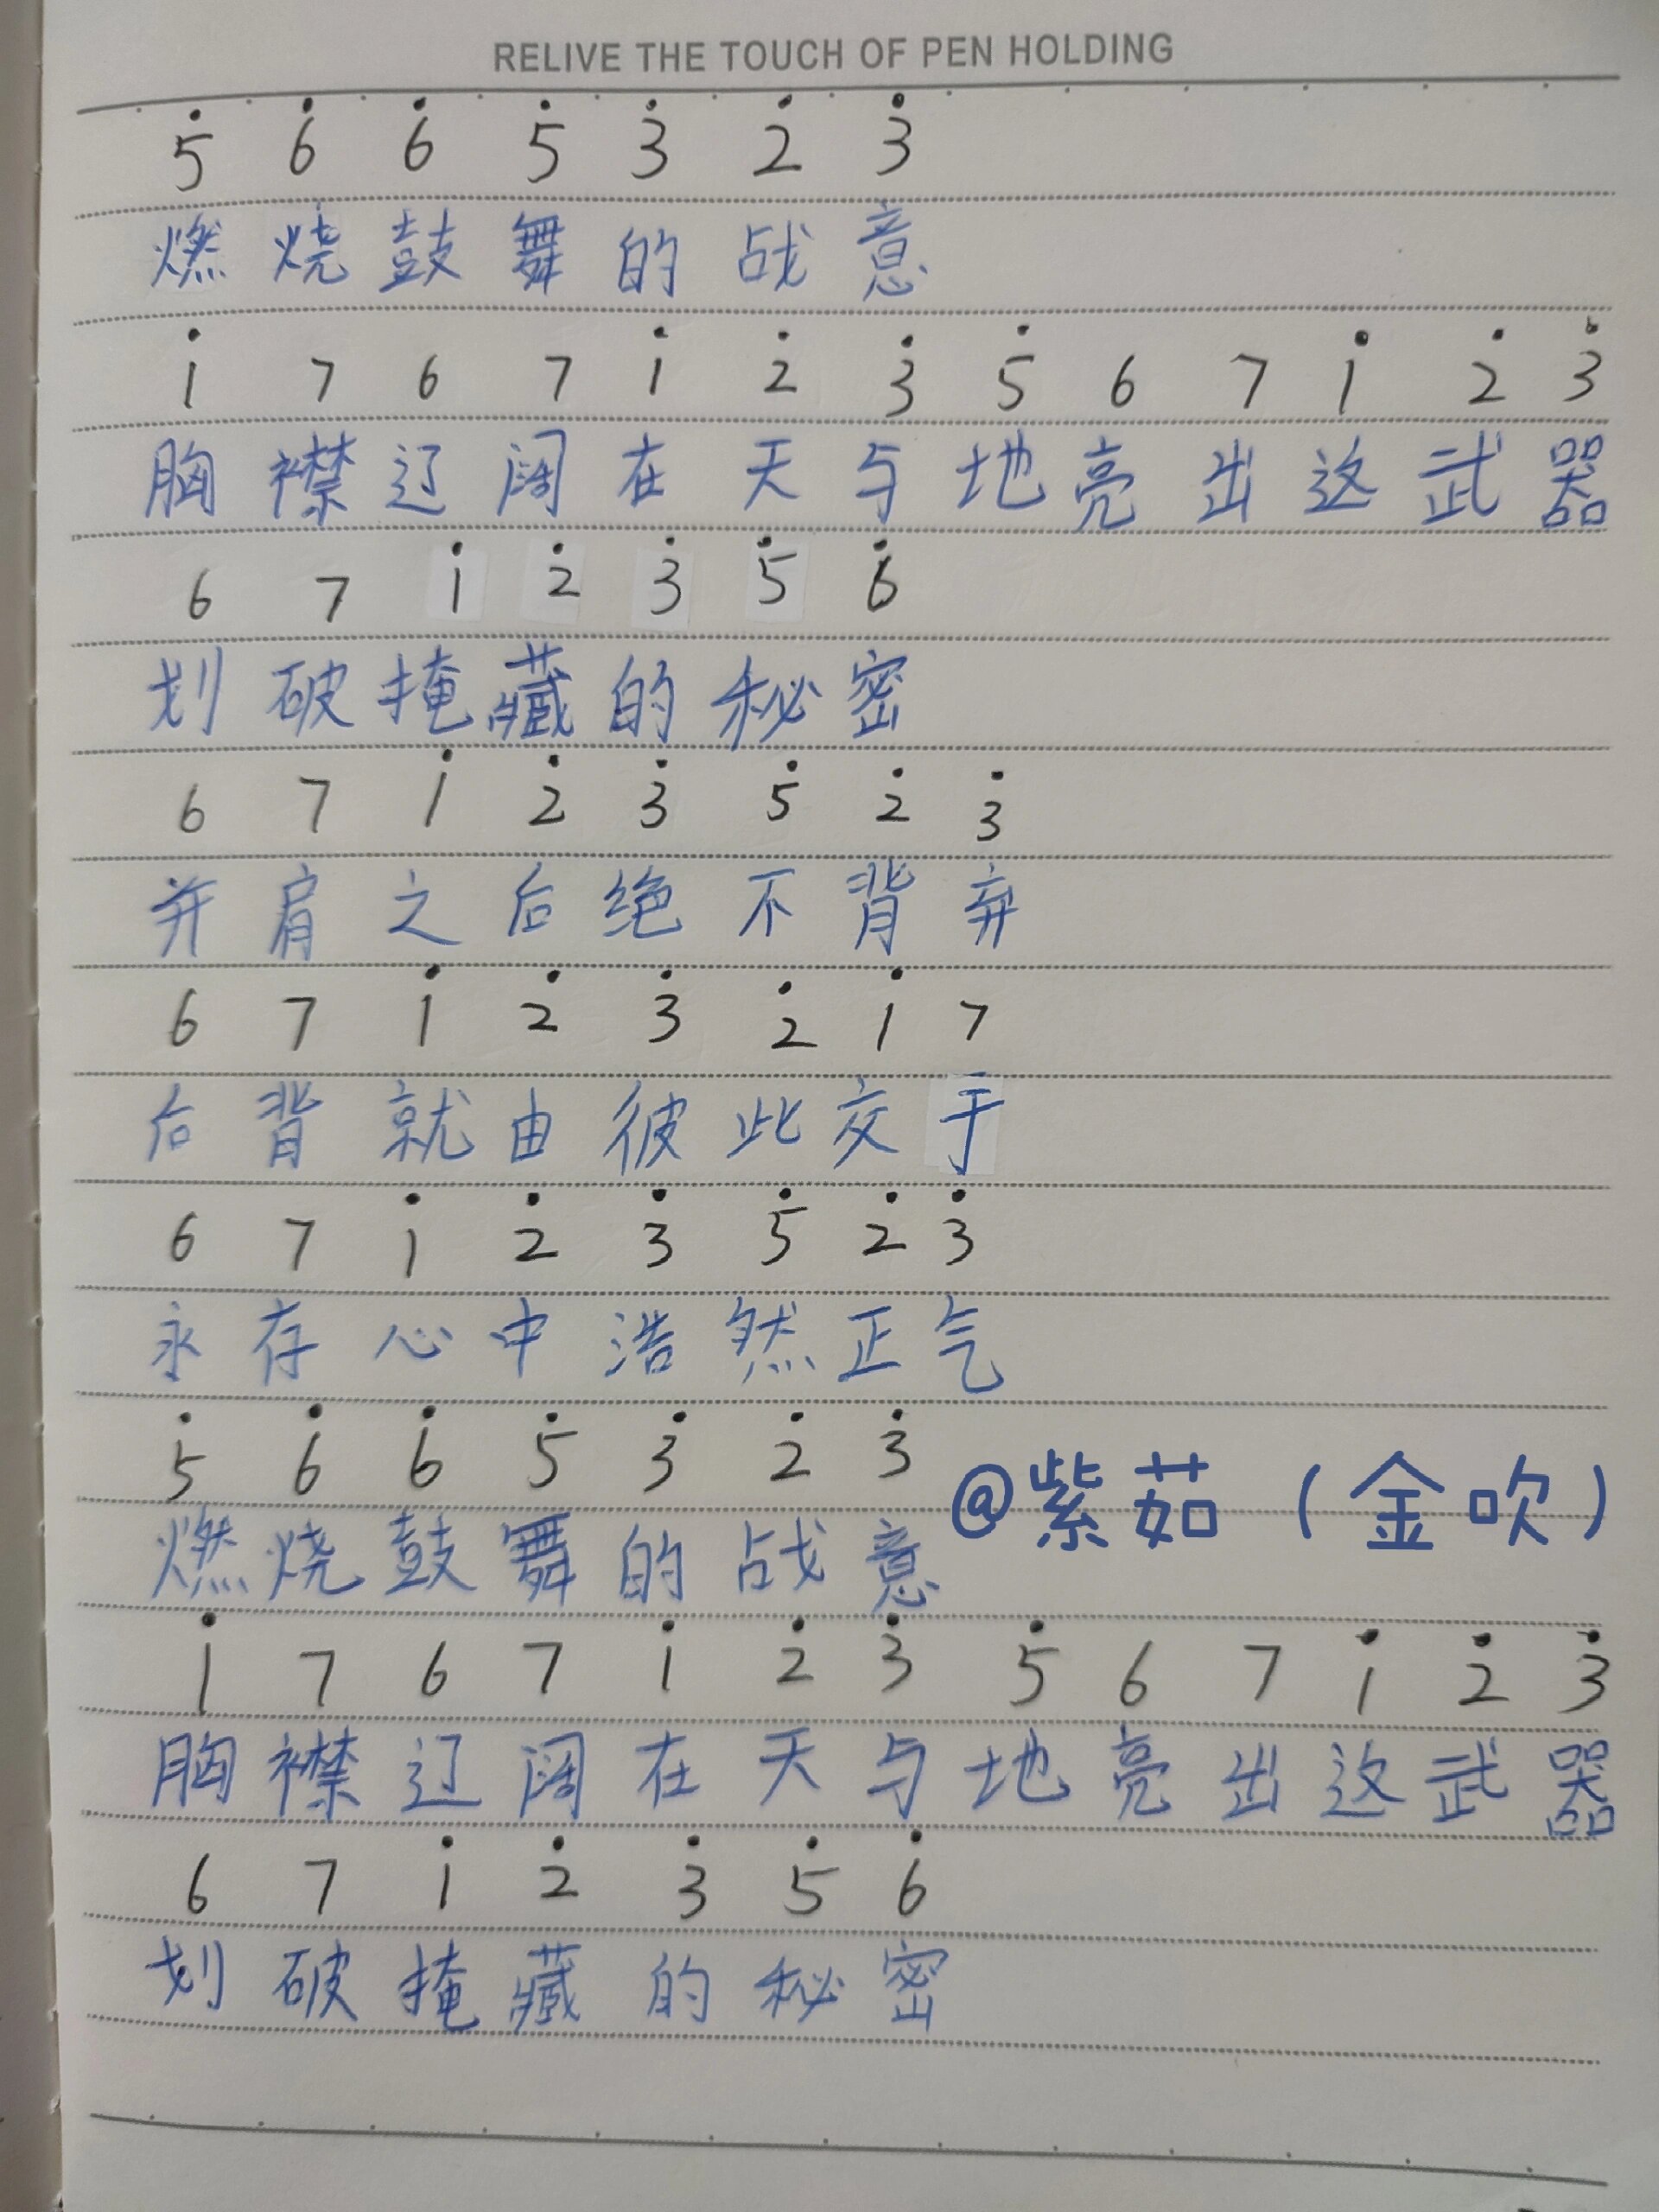 RELIVE THE TOUCH OF PEN HOLDING
5̇ 6̇ 6̇ 5̇ 3̇ 2̇ 3̇
燃烧鼓舞的战意
1̇ 7 6 7 1̇ 2̇ 3̇ 5̇ 6 7 1̇ 2̇ 3̇
胸襟辽阔在天与地亮出这武器
6 7 1̇ 2̇ 3̇ 5̇ 6̇
划破掩藏的秘密
6 7 1̇ 2̇ 3̇ 5̇ 2̇ 3̇
并肩之后绝不背弃
6 7 1̇ 2̇ 3̇ 2̇ 1̇ 7
后背就由彼此交于
6 7 1̇ 2̇ 3̇ 5̇ 2̇ 3̇
永存心中浩然正气
5̇ 6̇ 6̇ 5̇ 3̇ 2̇ 3̇
@紫茹(金吹)
燃烧鼓舞的战意
1̇ 7 6 7 1̇ 2̇ 3̇ 5̇ 6 7 1̇ 2̇ 3̇
胸襟辽阔在天与地亮出这武器
6 7 1̇ 2̇ 3̇ 5̇ 6̇
划破掩藏的秘密